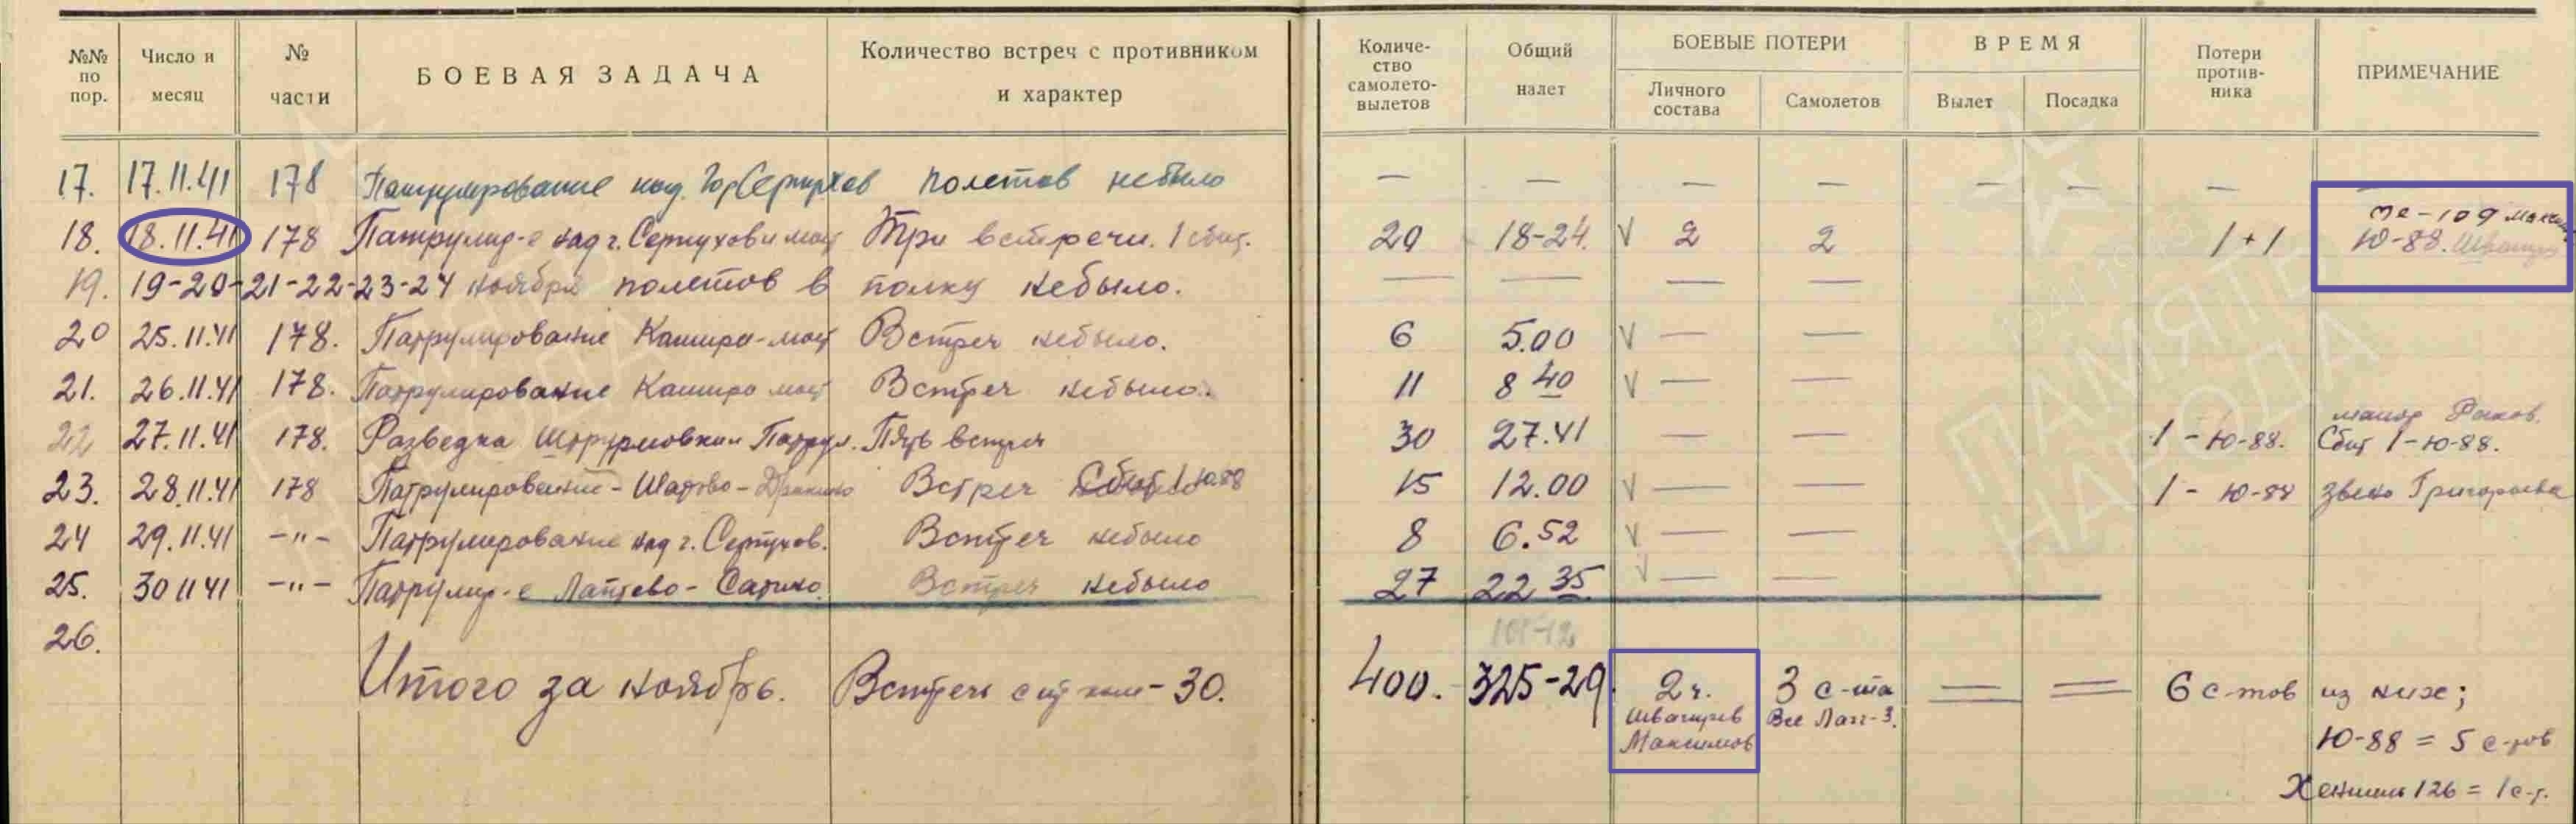 №№ по пор. Число и месяц № части БОЕВАЯ ЗАДАЧА Количество встреч с противником и характер Количе-ство самолето-вылетов Общий налет БОЕВЫЕ ПОТЕРИ Личного состава Самолетов ВРЕМЯ Вылет Посадка Потери против-ника ПРИМЕЧАНИЕ
17. 17.11.41 178 Патрулирование над Гор Серпухов полетов небыло — — — — — — — —
Ме-109 Максим
18. 18.11.41 178 Патрулир-е над г. Серпухов и мост Три встречи. 1 сбит. 20 18-24. V 2 2 1+1 Ю-88. Швагирев
19. 19-20-21-22-23-24 ноября полетов в полку небыло. — — — —
20 25.11.41 178. Патрулирование Кашира-мост Встреч небыло. 6 5.00 V — —
21. 26.11.41 178. Патрулирование Кашира мост Встреч небыло. 11 8 40 V — —
майор Раков.
22 27.11.41 178. Разведка Штурмовкии Патрул. Пять встреч 30 27.41 — — 1-Ю-88. Сбит 1-Ю-88.
23. 28.11.41 178 Патрулирование - Шатово - Дракино Встреч 1 Ю88 15 12.00 V — — 1-Ю-88 звено Григорьева
24 29.11.41 -"- Патрулирование над г. Серпухов. Встреч небыло 8 6.52 V — —
25. 30 11 41 -"- Патрулир-е Лаптево - Встреч небыло 27 22 35. V — —
26.
Итого за ноябрь. Встречь с - 30. 400. 325-29 2ч. 3 с-та — — 6 с-тов из них;
Швагирев Все Лагг-3.
Максимов Ю-88 = 5 с-тов
Хеншель 126 = 1 с-т.
ПАМЯТЬ
НАРОДА